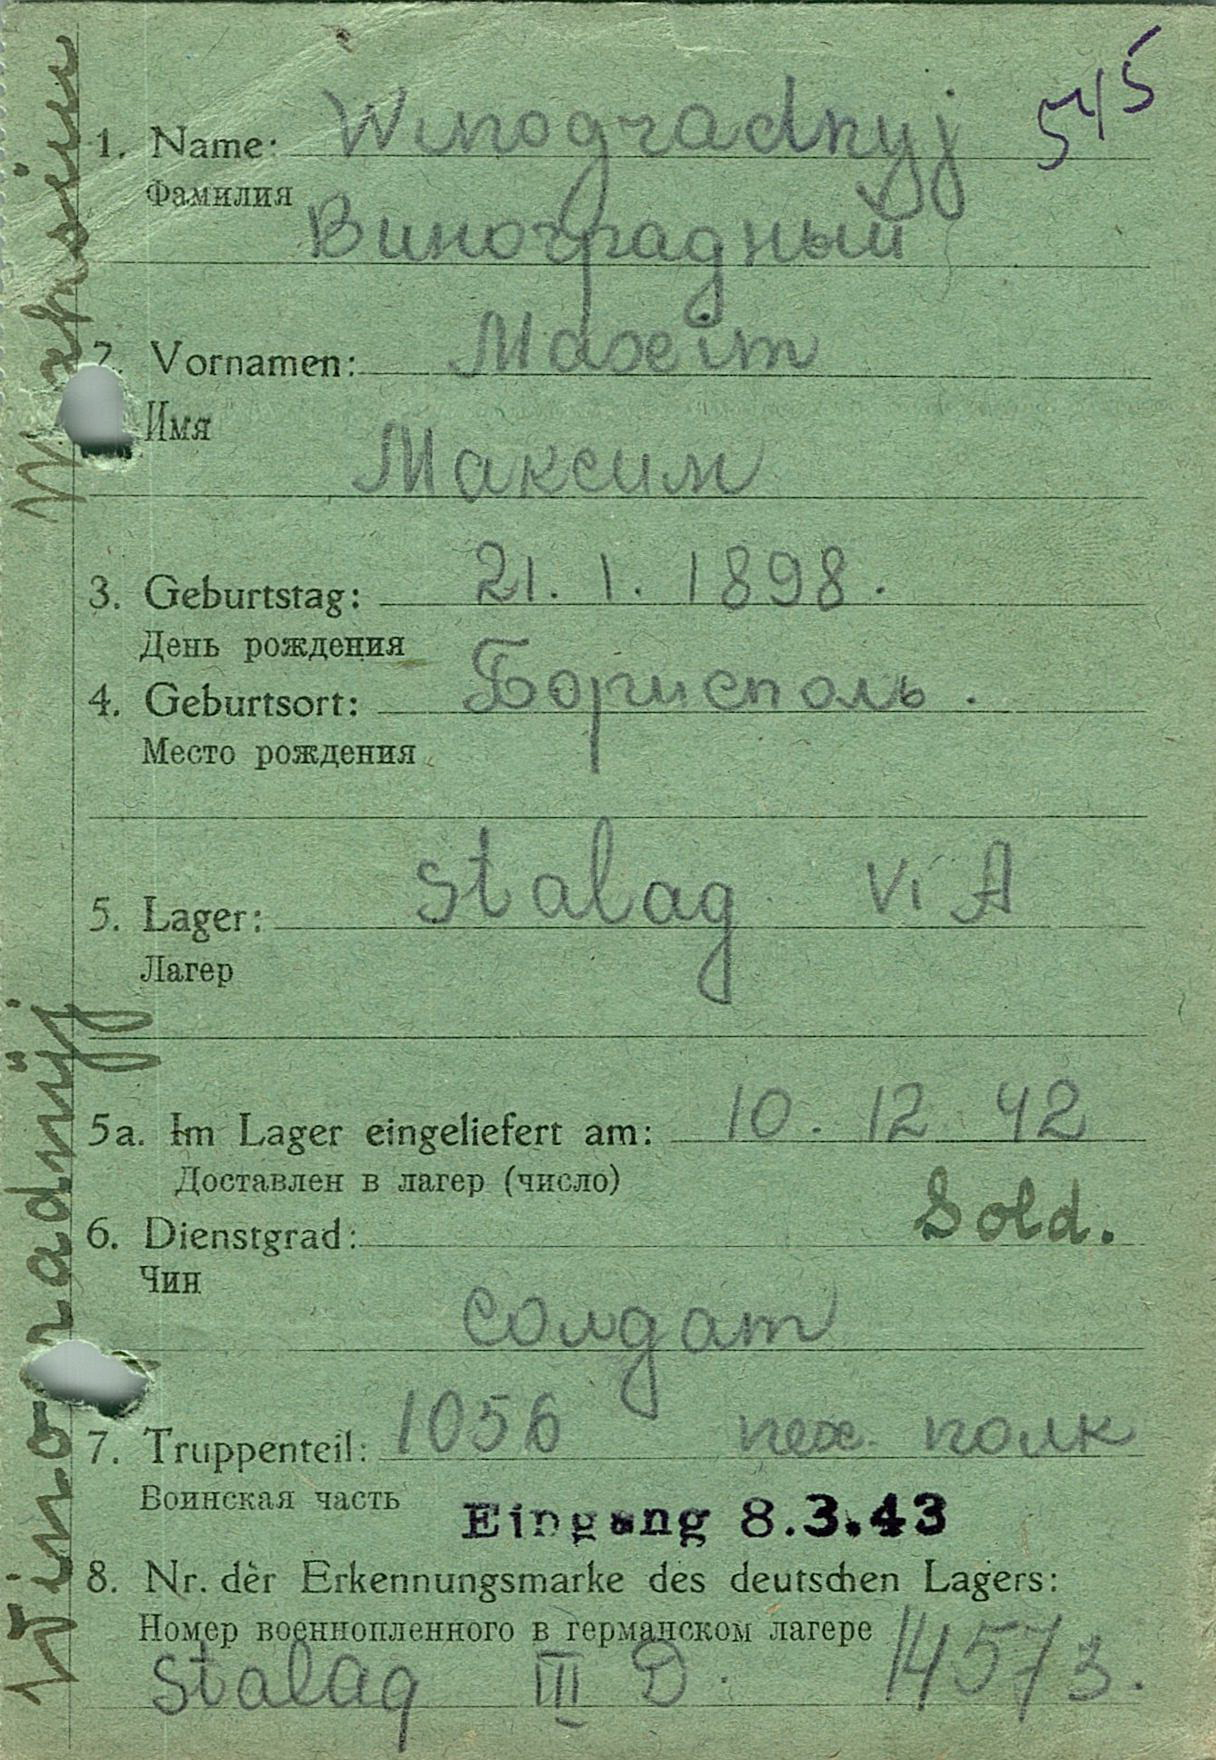 545
1. Name: Winogradnyj
Фамилия
Виноградный
2. Vornamen: Maxeim
Имя
Максим
3. Geburtstag: 21. 1. 1898.
День рождения
4. Geburtsort: Борисполь.
Место рождения
5. Lager: Stalag VI A
Лагер
5a. Im Lager eingeliefert am: 10. 12 42
Доставлен в лагер (число)
Sold.
6. Dienstgrad:
Чин
Солдат
7. Truppenteil: 1056 пех. полк
Воинская часть
Eingang 8.3.43
8. Nr. der Erkennungsmarke des deutschen Lagers:
Номер военнопленного в германском лагере
Stalag III D. 14573.